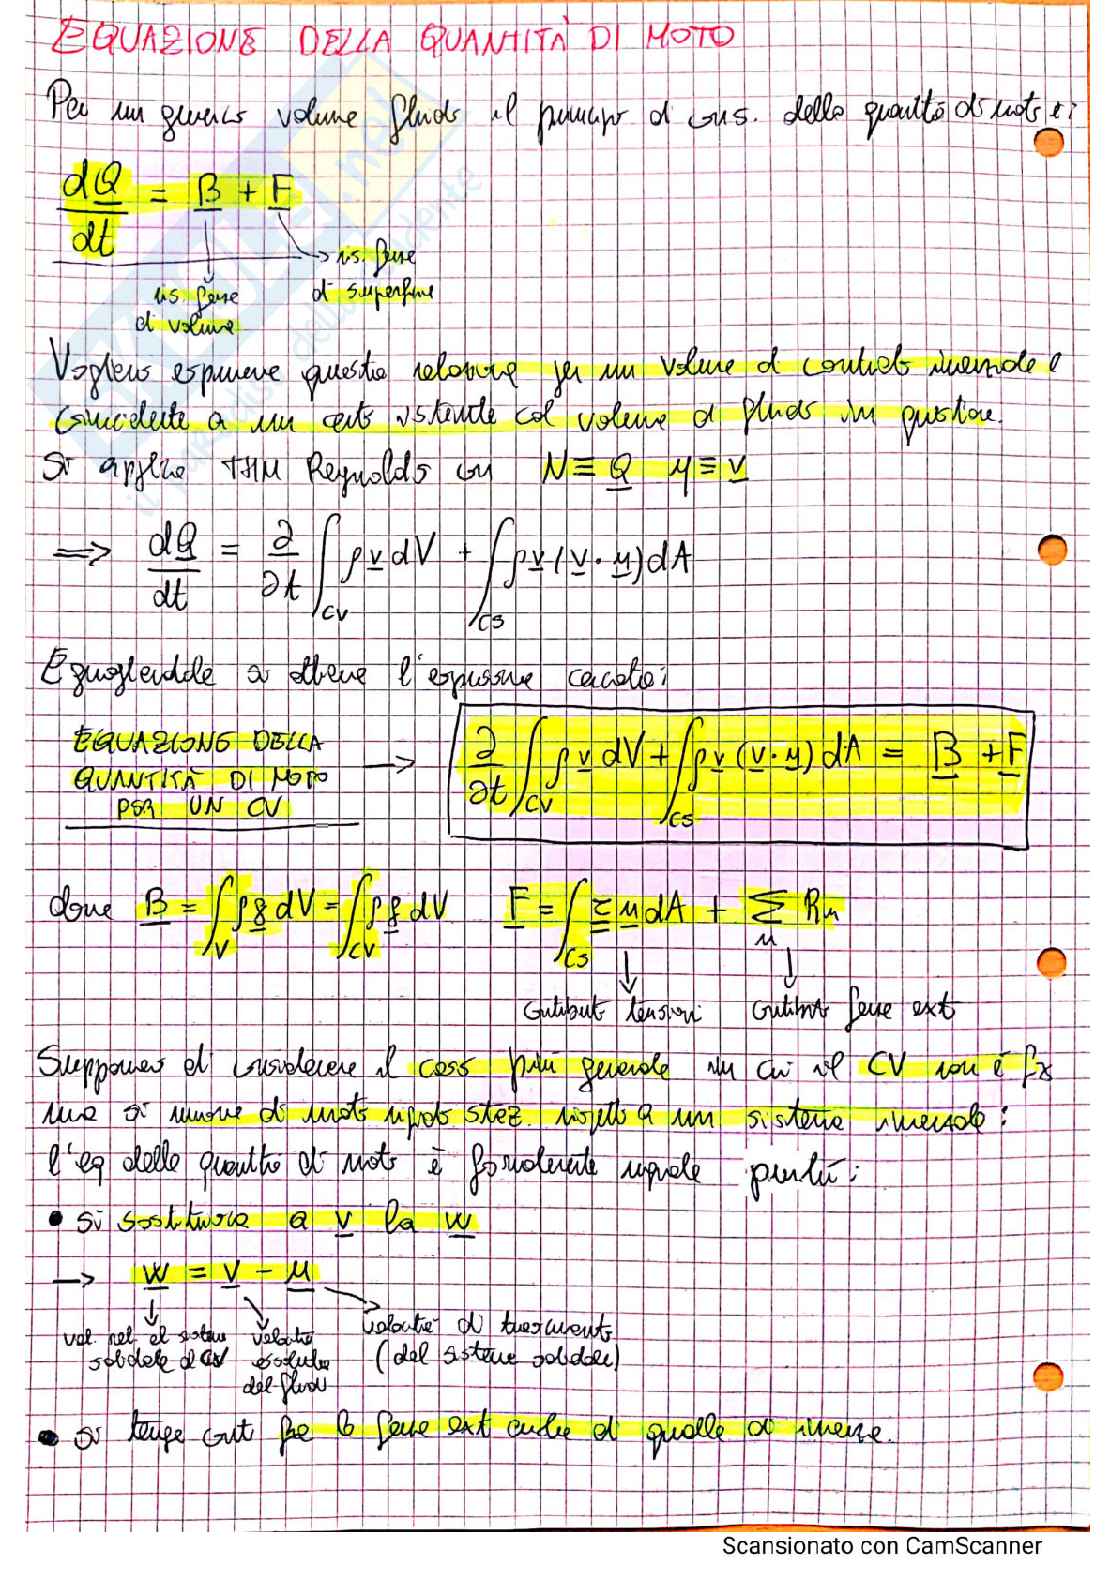 EQUAZIONE DELLA QUANTITÀ DI MOTO
Per un generico volume fluido il principio di cons. della quantità di moto è:
dQ/dt = B + F
ris. forze di superficie
ris. forze di volume
Vogliamo esprimere questa relazione per un volume di controllo inerziale e
coincidente a un certo istante col volume di fluido in questione.
Si applica THM Reynolds con N ≡ Q η ≡ v
⇒ dQ/dt = ∂/∂t ∫CV ρ v dV + ∫CS ρ v (v · n) dA
Eguagliandole si ottiene l'espressione cercata:
EQUAZIONE DELLA
QUANTITÀ DI MOTO
PER UN CV
→ ∂/∂t ∫CV ρ v dV + ∫CS ρ v (v · n) dA = B + F
dove B = ∫V ρ g dV = ∫CV ρ g dV F = ∫CS τ n dA + Σn Rn
contributi tensioni contributi forze ext
Supponiamo di considerare il caso più generale in cui il CV non è fix
ma si muove di moto rigido staz. rispetto a un sistema inerziale:
l'eq della quantità di moto è formalmente uguale purché:
• si sostituisca a v la w
→ w = v - u
vel. rel. al sistema solidale al CV
velocità assoluta del fluido
velocità di trascinamento
(del sistema solidale)
• si tenga cont fra le forze ext anche di quelle di inerzia.
Scansionato con CamScanner